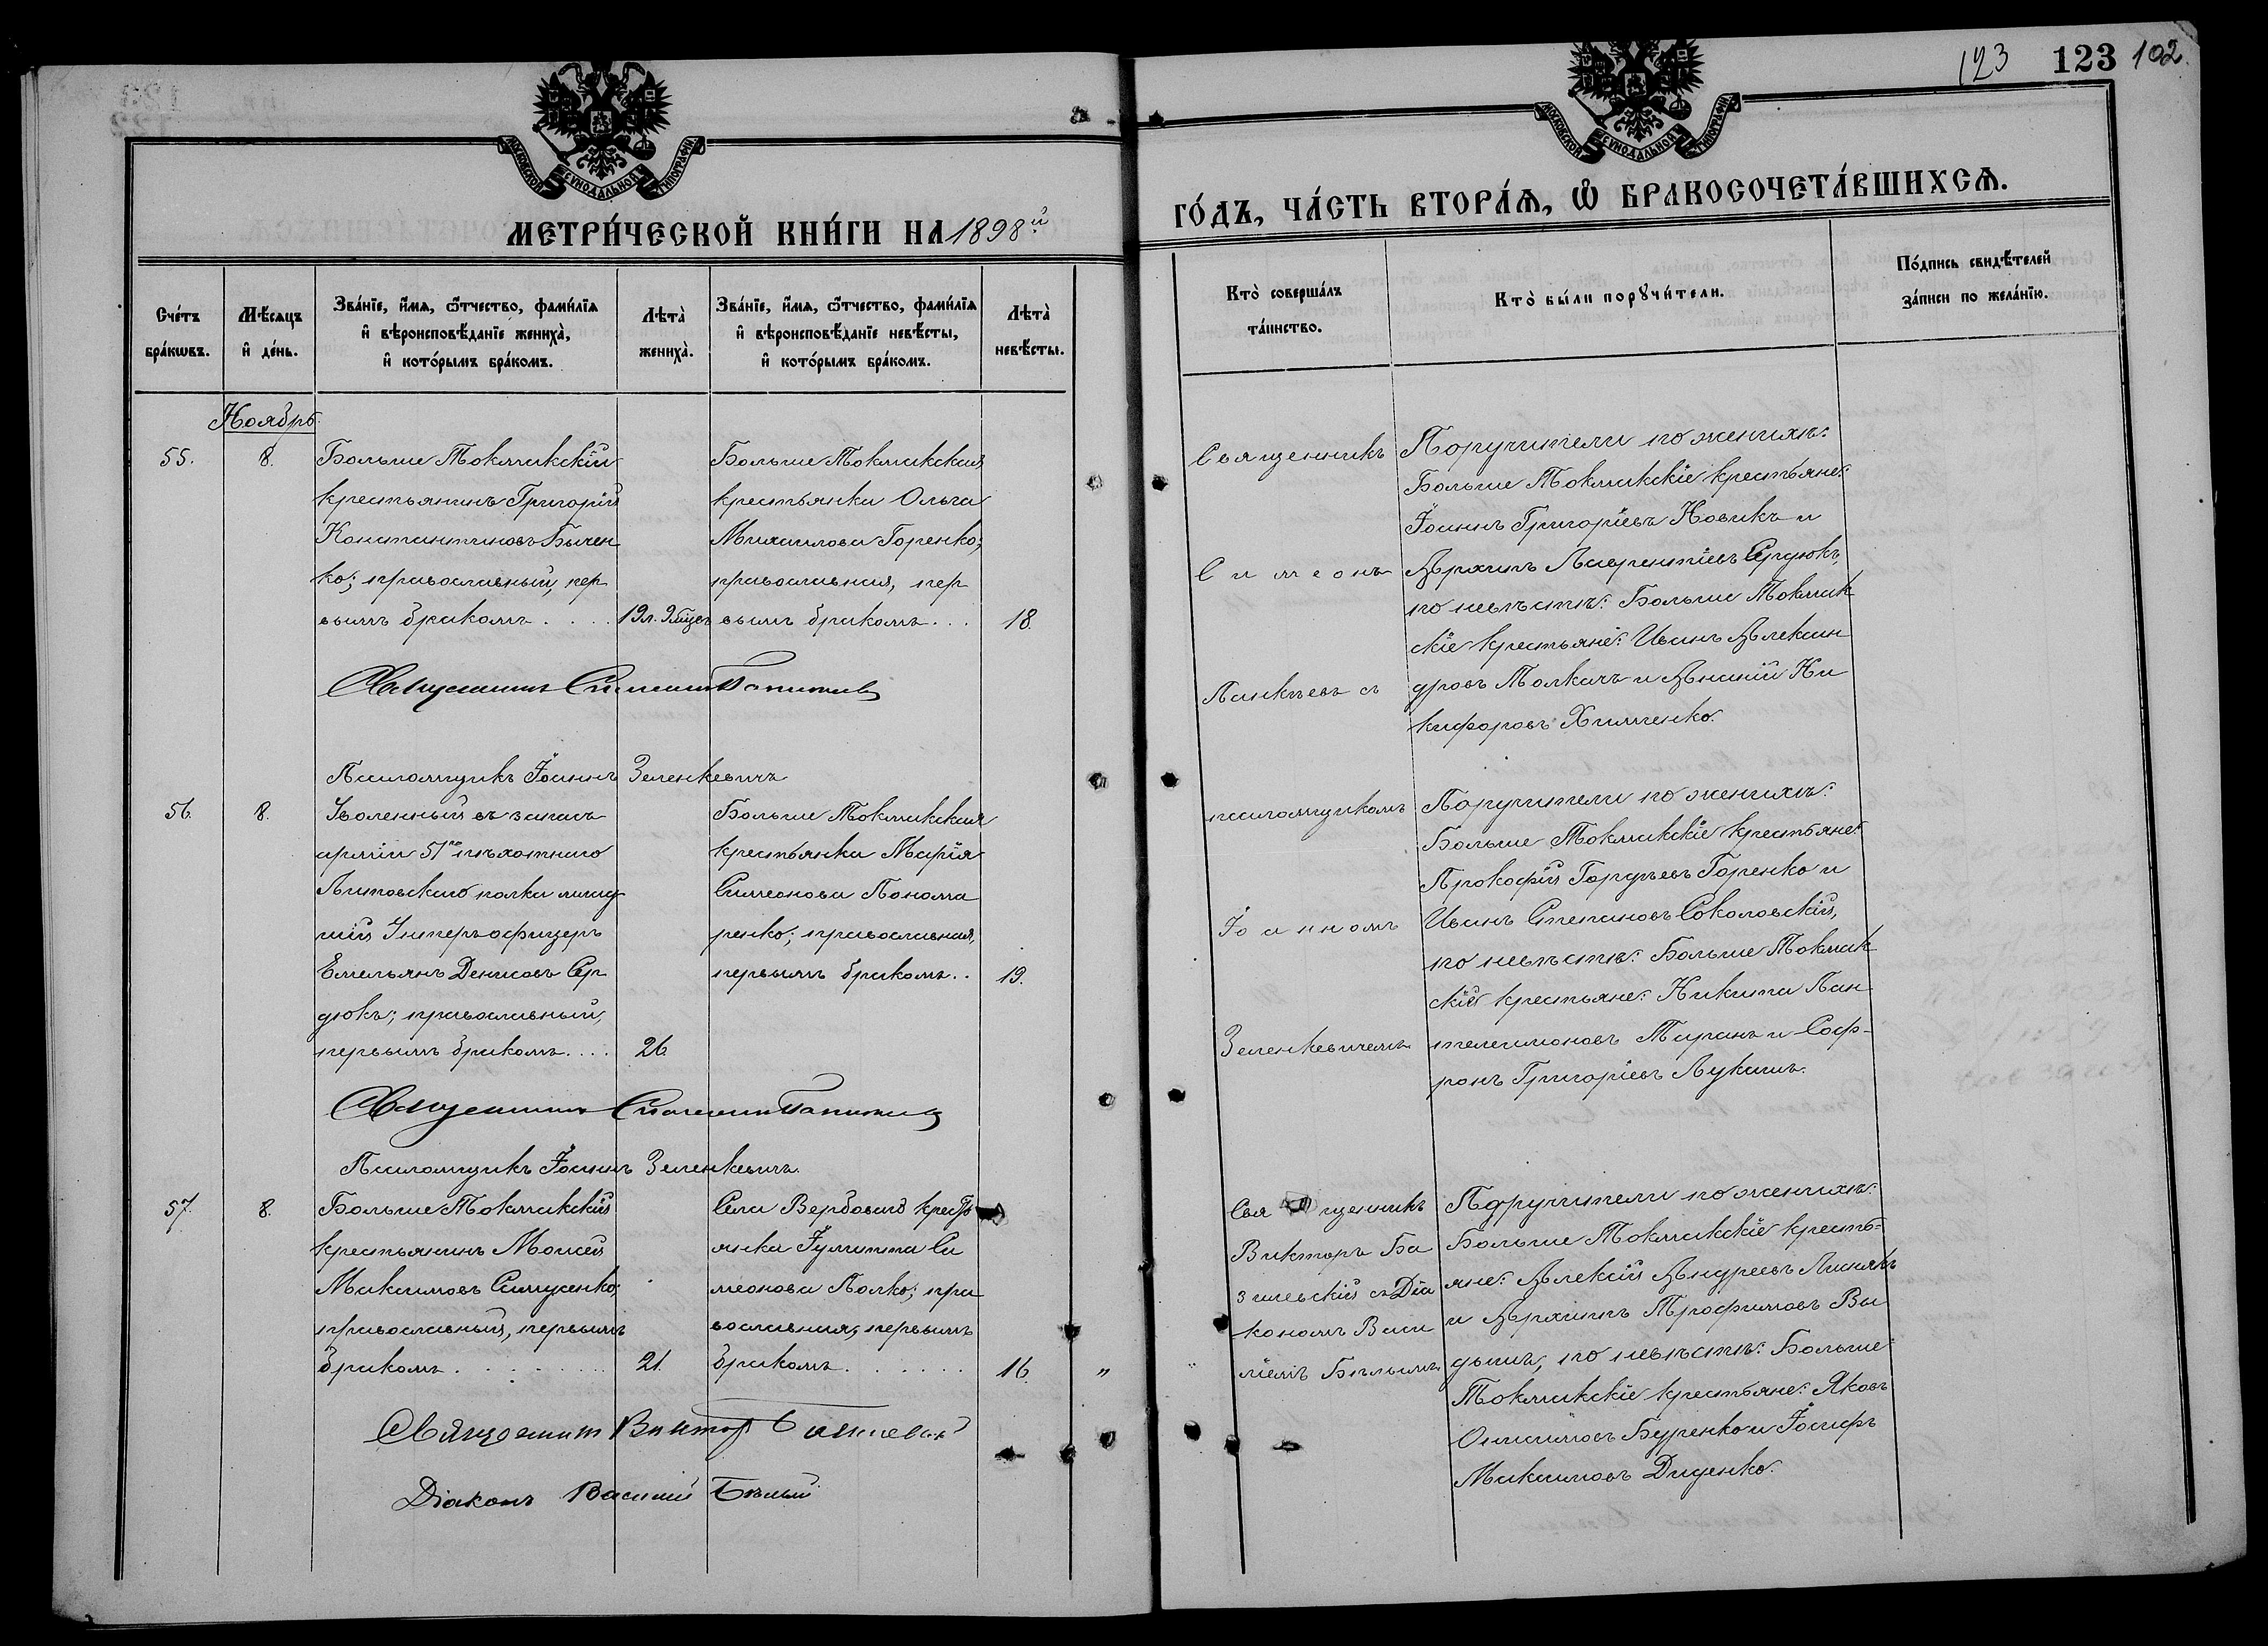 123 123 102.
МОСКОВСКОЙ СѴНОДАЛЬНОЙ ТИПОГРАФІИ
МОСКОВСКОЙ СѴНОДАЛЬНОЙ ТИПОГРАФІИ
МЕТРИ́ЧЕСКОЙ КНИ́ГИ НА 1898й
ГО́ДЪ, ЧА́СТЬ ВТОРА́Ѧ, Ѽ БРАКОСОЧЕТА́ВШИХСѦ.
Сче́тъ
бра́кѡвъ.
Мѣ́сяцъ
и҆ де́нь.
Зва́нїе, и҆́мѧ, ѻ҆́тчество, фами́лїѧ
и҆ вѣроисповѣ́данїе жениха̀,
и҆ кото́рымъ бра́комъ.
Лѣта̀
жениха̀.
Зва́нїе, и҆́мѧ, ѻ҆́тчество, фами́лїѧ
и҆ вѣроисповѣ́данїе невѣ́сты,
и҆ кото́рымъ бра́комъ.
Лѣта̀
невѣ́сты.
Кто̀ соверша́лъ
та́инство.
Кто̀ бы́ли порꙋчи́тели.
По́дпись свидѣ́телей
за́писи по жела́нїю.
Ноябрь.
55.
8.
Больше Токмакскій
крестьянинъ Григорій
Константиновъ Бычен
ко; православный, пер
вымъ бракомъ....
19 л. 9 мѣцев
Больше Токмакская
крестьянка Ольга
Михаилова Горенко;
православная, пер
вымъ бракомъ...
18.
Священникъ
Симеонъ
Панкѣевъ съ
Поручители по женихѣ:
Больше Токмакскіе крестьяне:
Іоаннъ Григоріевъ Новикъ и
Архипъ Лаврентіевъ Сердюкъ,
по невѣстѣ: Больше Токмак
скіе крестьяне: Иванъ Алексан
дровъ Толкачъ и Ананій Ни
кифоровъ Химченко.
Священникъ Симеонъ Панкѣевъ
Псаломщикъ Іоаннъ Зеленкевичъ
56.
8.
Уволенный въ запасъ
арміи 51го пѣхотнаго
Литовскаго полка млад
шій Унтеръ-офицеръ
Емельянъ Денисовъ Сер
дюкъ; православный,
первымъ бракомъ....
26
Больше Токмакская
крестьянка Марія
Симеонова Понома
ренко; православная,
первымъ бракомъ..
19.
псаломщикомъ
Іоанномъ
Зеленкевичемъ
Поручители по женихѣ:
Больше Токмакскіе крестьяне:
Прокофій Гордѣевъ Горенко и
Иванъ Степановъ Соколовскій,
по невѣстѣ: Больше Токмак
скіе крестьяне: Никита Пан
телеимоновъ Таранъ и Соф-
ронъ Григоріевъ Лукашъ.
Священникъ Симеонъ Панкѣевъ
Псаломщикъ Іоаннъ Зеленкевичъ.
57.
8.
Больше Токмакскій
крестьянинъ Моисей
Максимовъ Самусенко;
православный, первымъ
бракомъ........
21.
Села Вербоваго кресть
янка Іулитта Си
меонова Полко; пра
вославная, первымъ
бракомъ......
16.
"
Священникъ
Викторъ Ба
зилевскій съ Діа
кономъ Васи
ліемъ Бѣлымъ
Поручители по женихѣ:
Больше Токмакскіе кресть-
яне: Алексій Андреевъ Лиснякъ
и Архипъ Трофимовъ Ва
дьнъ, по невѣстѣ: Больше-
Токмакскіе крестьяне: Яковъ
Онисимовъ Буренко и Іосифъ
Максимовъ Диденко.
Священникъ Викторъ Базилевскій
Діаконъ Василій Бѣлый